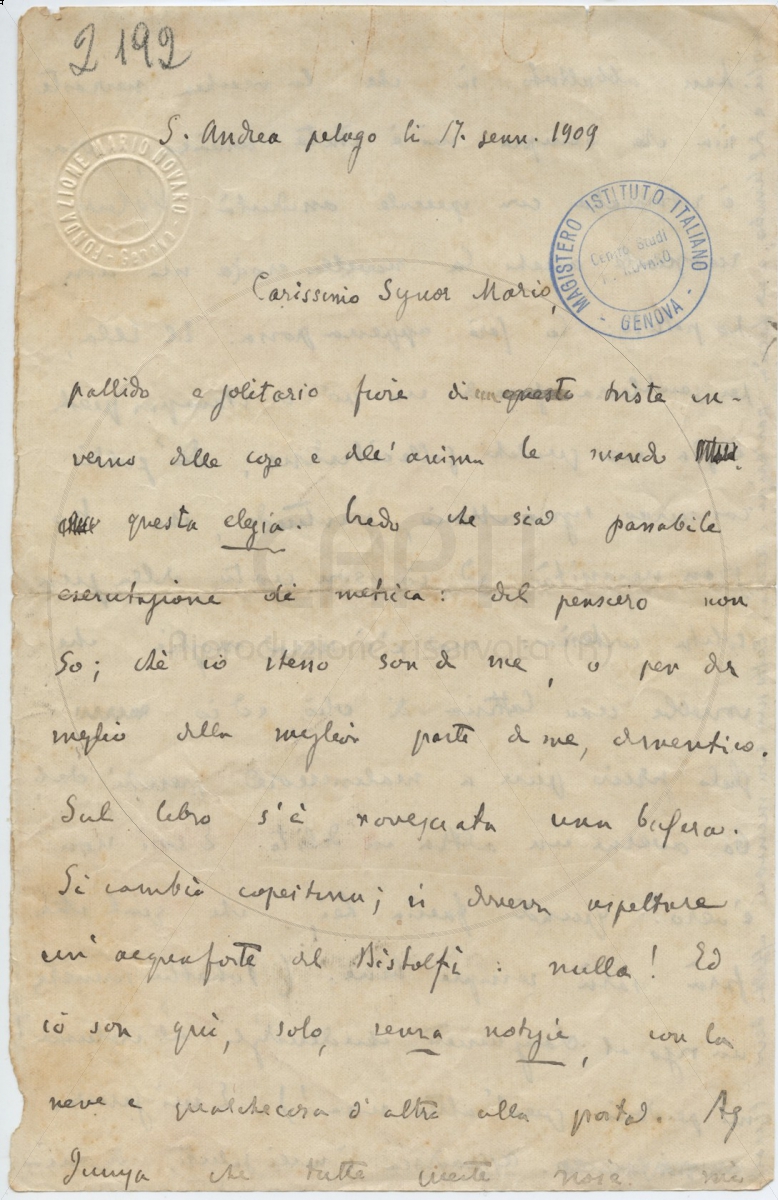 2192
S. Andrea pelago li 17. genn. 1909
FONDAZIONE MARIO NOVARO - GENOVA -
MAGISTERO ISTITUTO ITALIANO - GENOVA -
Centro Studi
NOVARO
Carissimo Signor Mario,
pallido e solitario fiore di questo triste in-
verno delle cose e dell'anima le mando
questa elegia. Credo che sia passabile
esercitazione di metrica: del pensiero non
so; chè io stesso son di me, o per dir
meglio della miglior parte di me, dimentico.
Sul libro s'è rovesciata una bufera.
Si cambiò copertina; si doveva aspettare
un'acquaforte del Bistolfi: nulla! Ed
io son quì, solo, senza notizie, con la
neve e qualchecosa d'altro alla porta. Ag
giunga che tutte queste noie mi
CRPII
Riproduzione riservata (R)